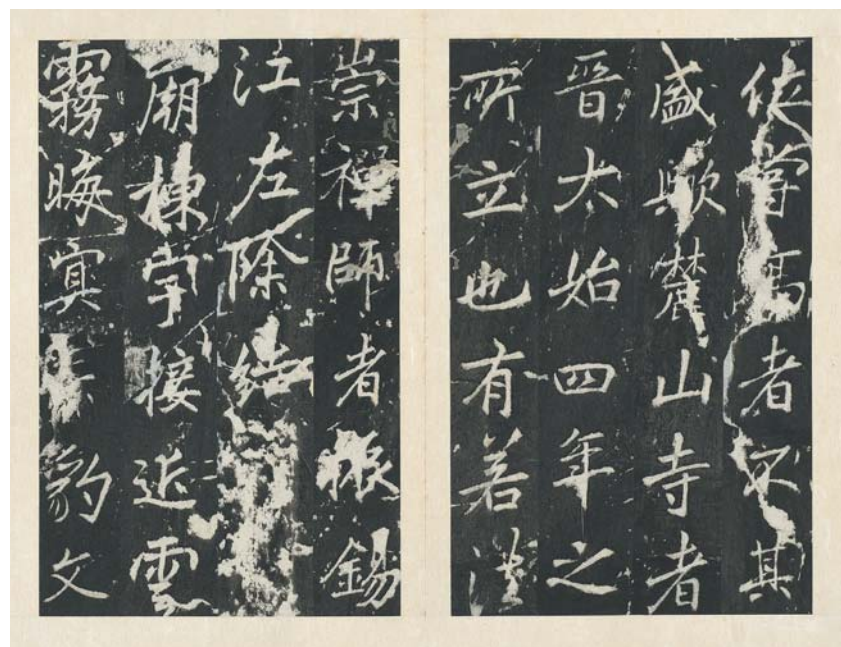 焉者不其
盛歟麓山寺者
晉太始四年之
所立也有若法
崇禪師者振錫
江左除結
廟棟宇接近雲
霧晦冥豹文